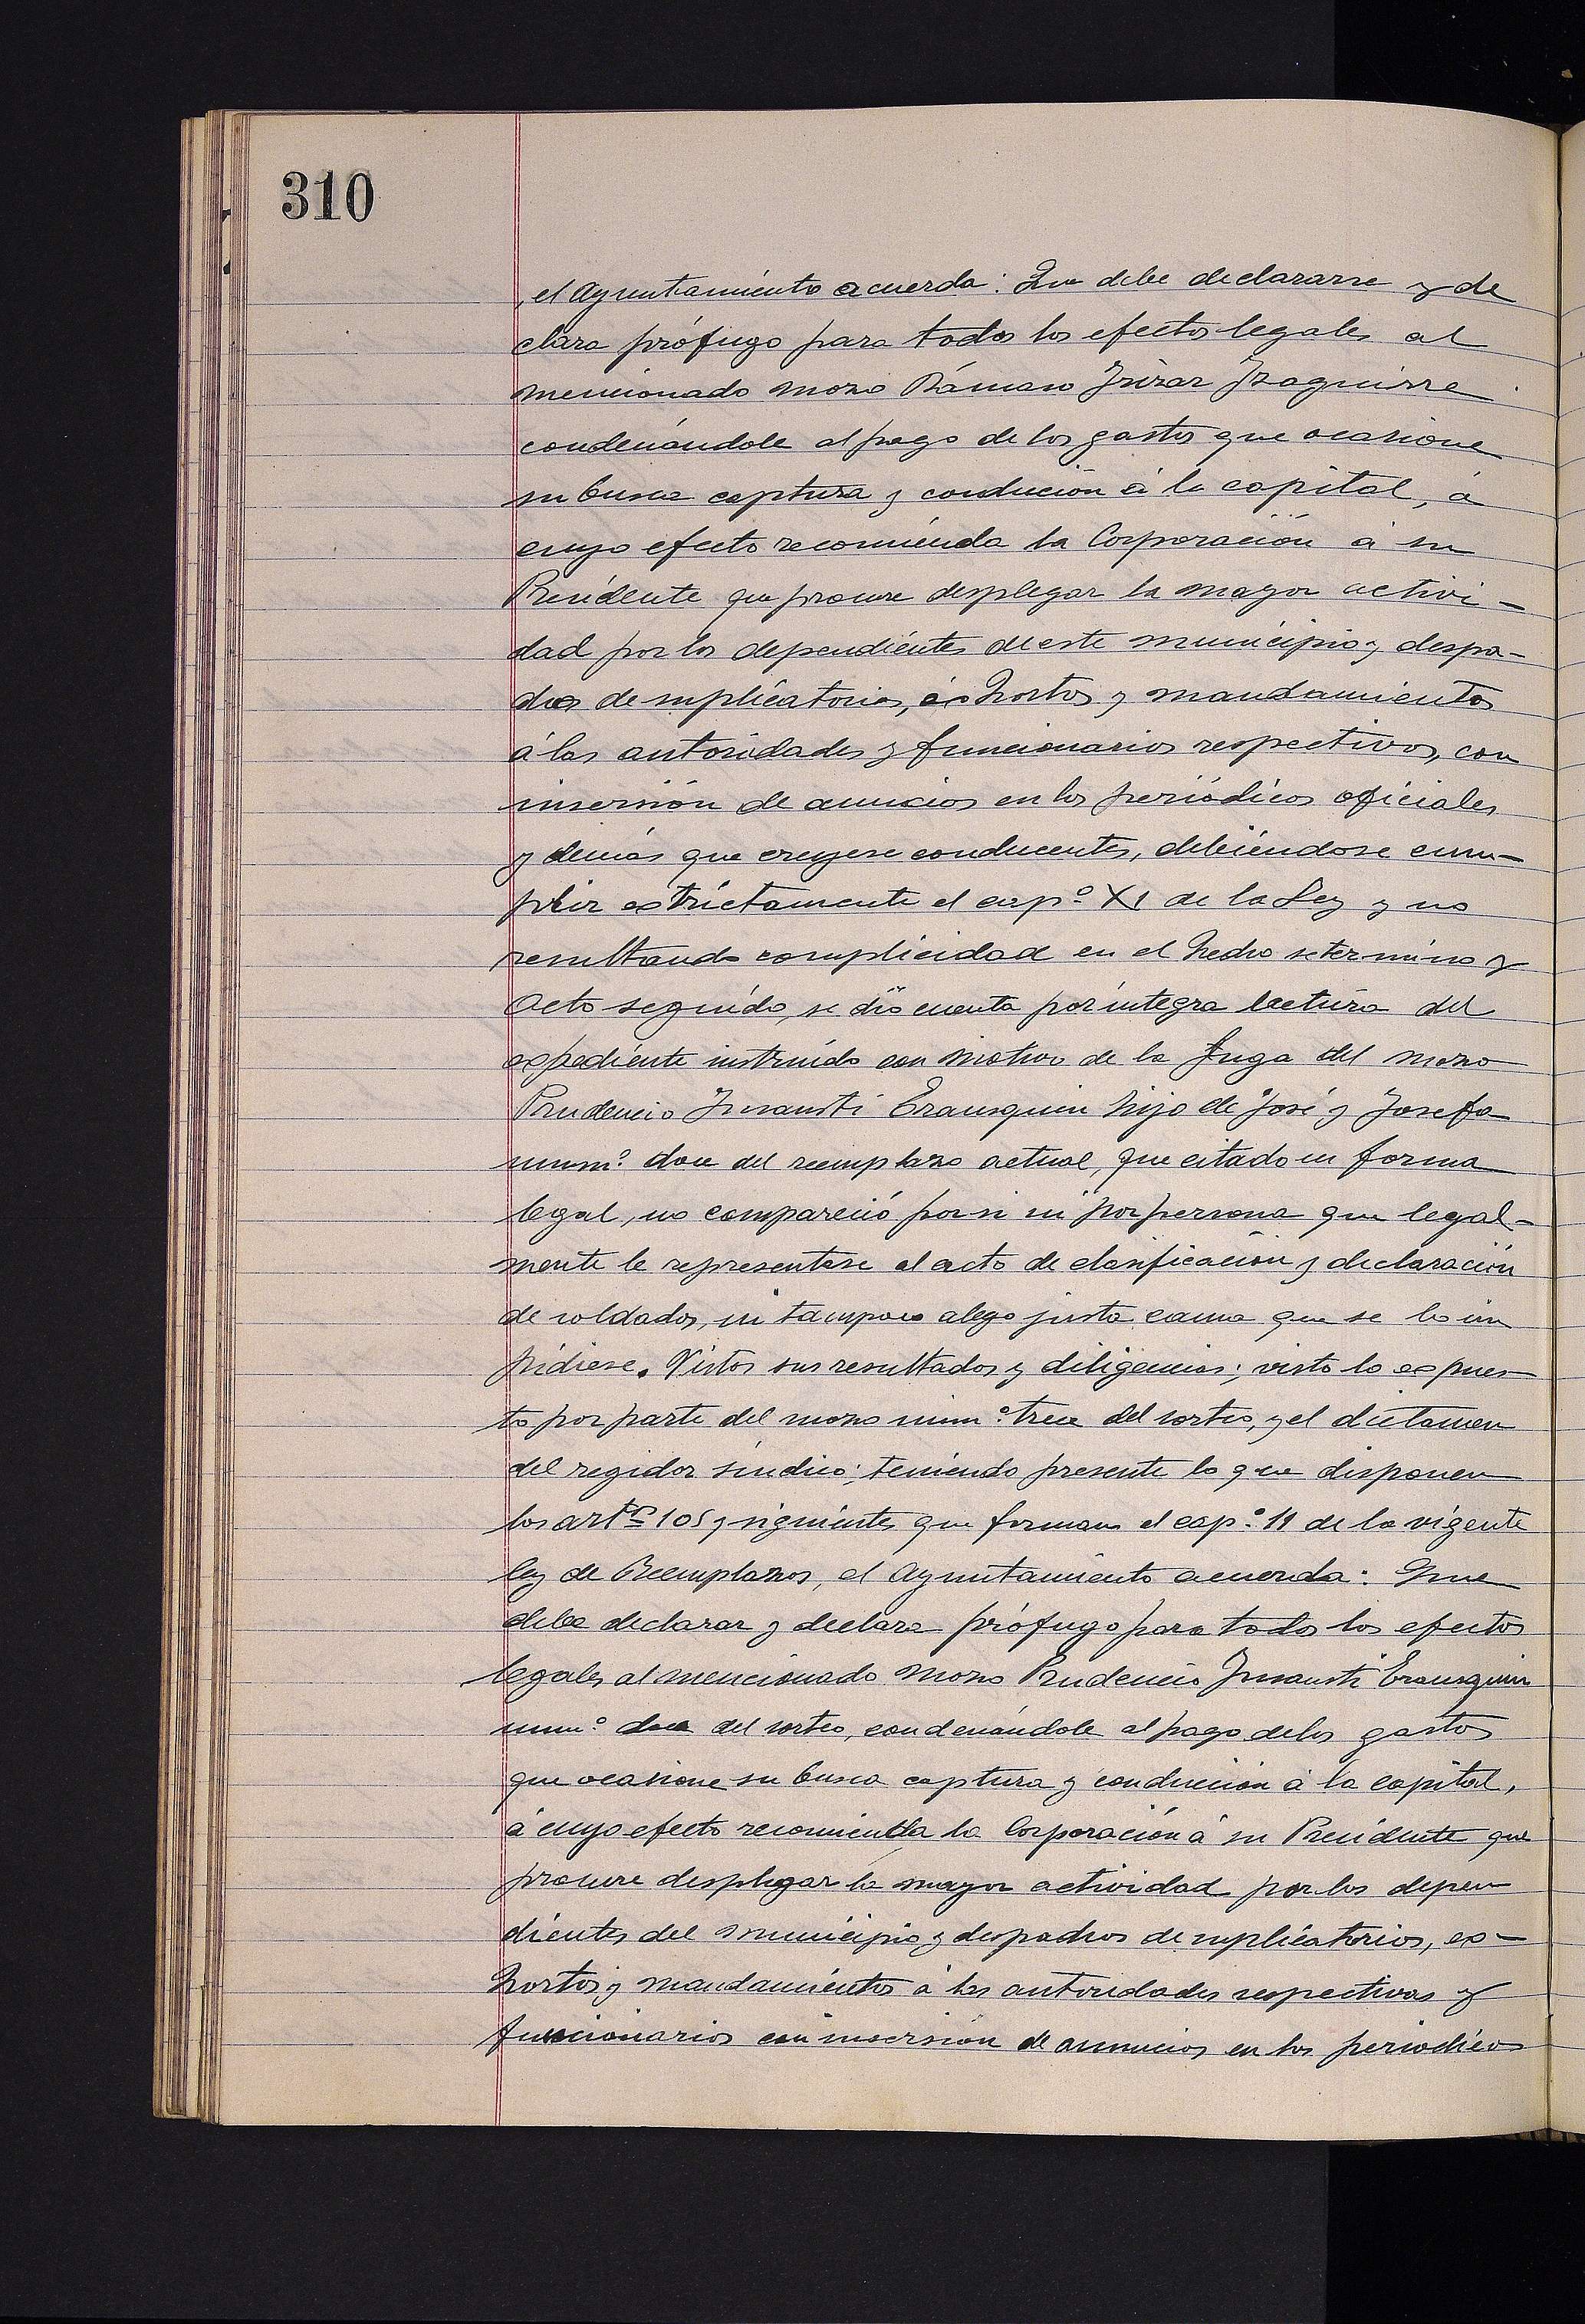 310
, el Ayuntamiento acuerda: Que debe declararse y de
clara prófugo para todos los efectos legales al
mencionado mozo Ramon Irizar Izaguirre
condenándole al pago de los gastos que ocasione
su busca captura y conducion á la capital, á
cuyo efecto recomienda la Corporación á su
Presidente que procure desplegar la mayor activi-
dad por los dependientes de este municipio y despa-
chos de suplicatorios, exhortos y mandamientos
á las autoridades y funcionarios respectivos, con
inserción de anuncios en los periódicos oficiales
y demás que creyese conducentes, debiéndose cum-
plir estrictamente el cap.º XI de la Ley y no
resultando complicidad en el hecho se termino y
Acto seguido, se dio cuenta por integra lectura del
expediente instruido con motivo de la fuga del mozo
Prudencio Insausti Erausquin hijo de José y Josefa
num.º doce del reemplazo actual, que citado en forma
legal, no compareció por si ni por persona que legal-
mente le representase al acto de clasificación y declaración
de soldados, ni tampoco alego justa causa que se lo im
pidiese. Vistos sus resultados y diligencias; visto lo expues
to por parte del mozo num.º trece del sorteo, y el dictamen
del regidor síndico; teniendo presente lo que disponen
los artºs 105 y siguientes que forman el cap.º 11 de la vigente
ley de Reemplazos, el Ayuntamiento acuerda: Que
debe declarar y declara prófugo para todos los efectos
legales al mencionado mozo Prudencio Insausti Erausquin
num.º doce del sorteo, condenándole al pago de los gastos
que ocasione su busca captura y conducion á la capital,
á cuyo efecto recomienda la Corporación á su Presidente que
procure desplegar la mayor actividad por los depen
dientes del municipio y despachos de suplicatorios, ex-
hortos y mandamientos á las autoridades respectivas y
funcionarios con inserción de anuncios en los periodicos